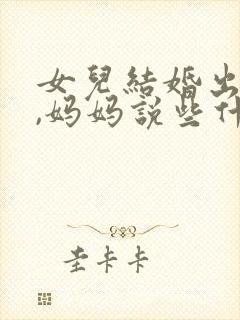 女兒結婚出
,妈妈說些什
圭卡卡